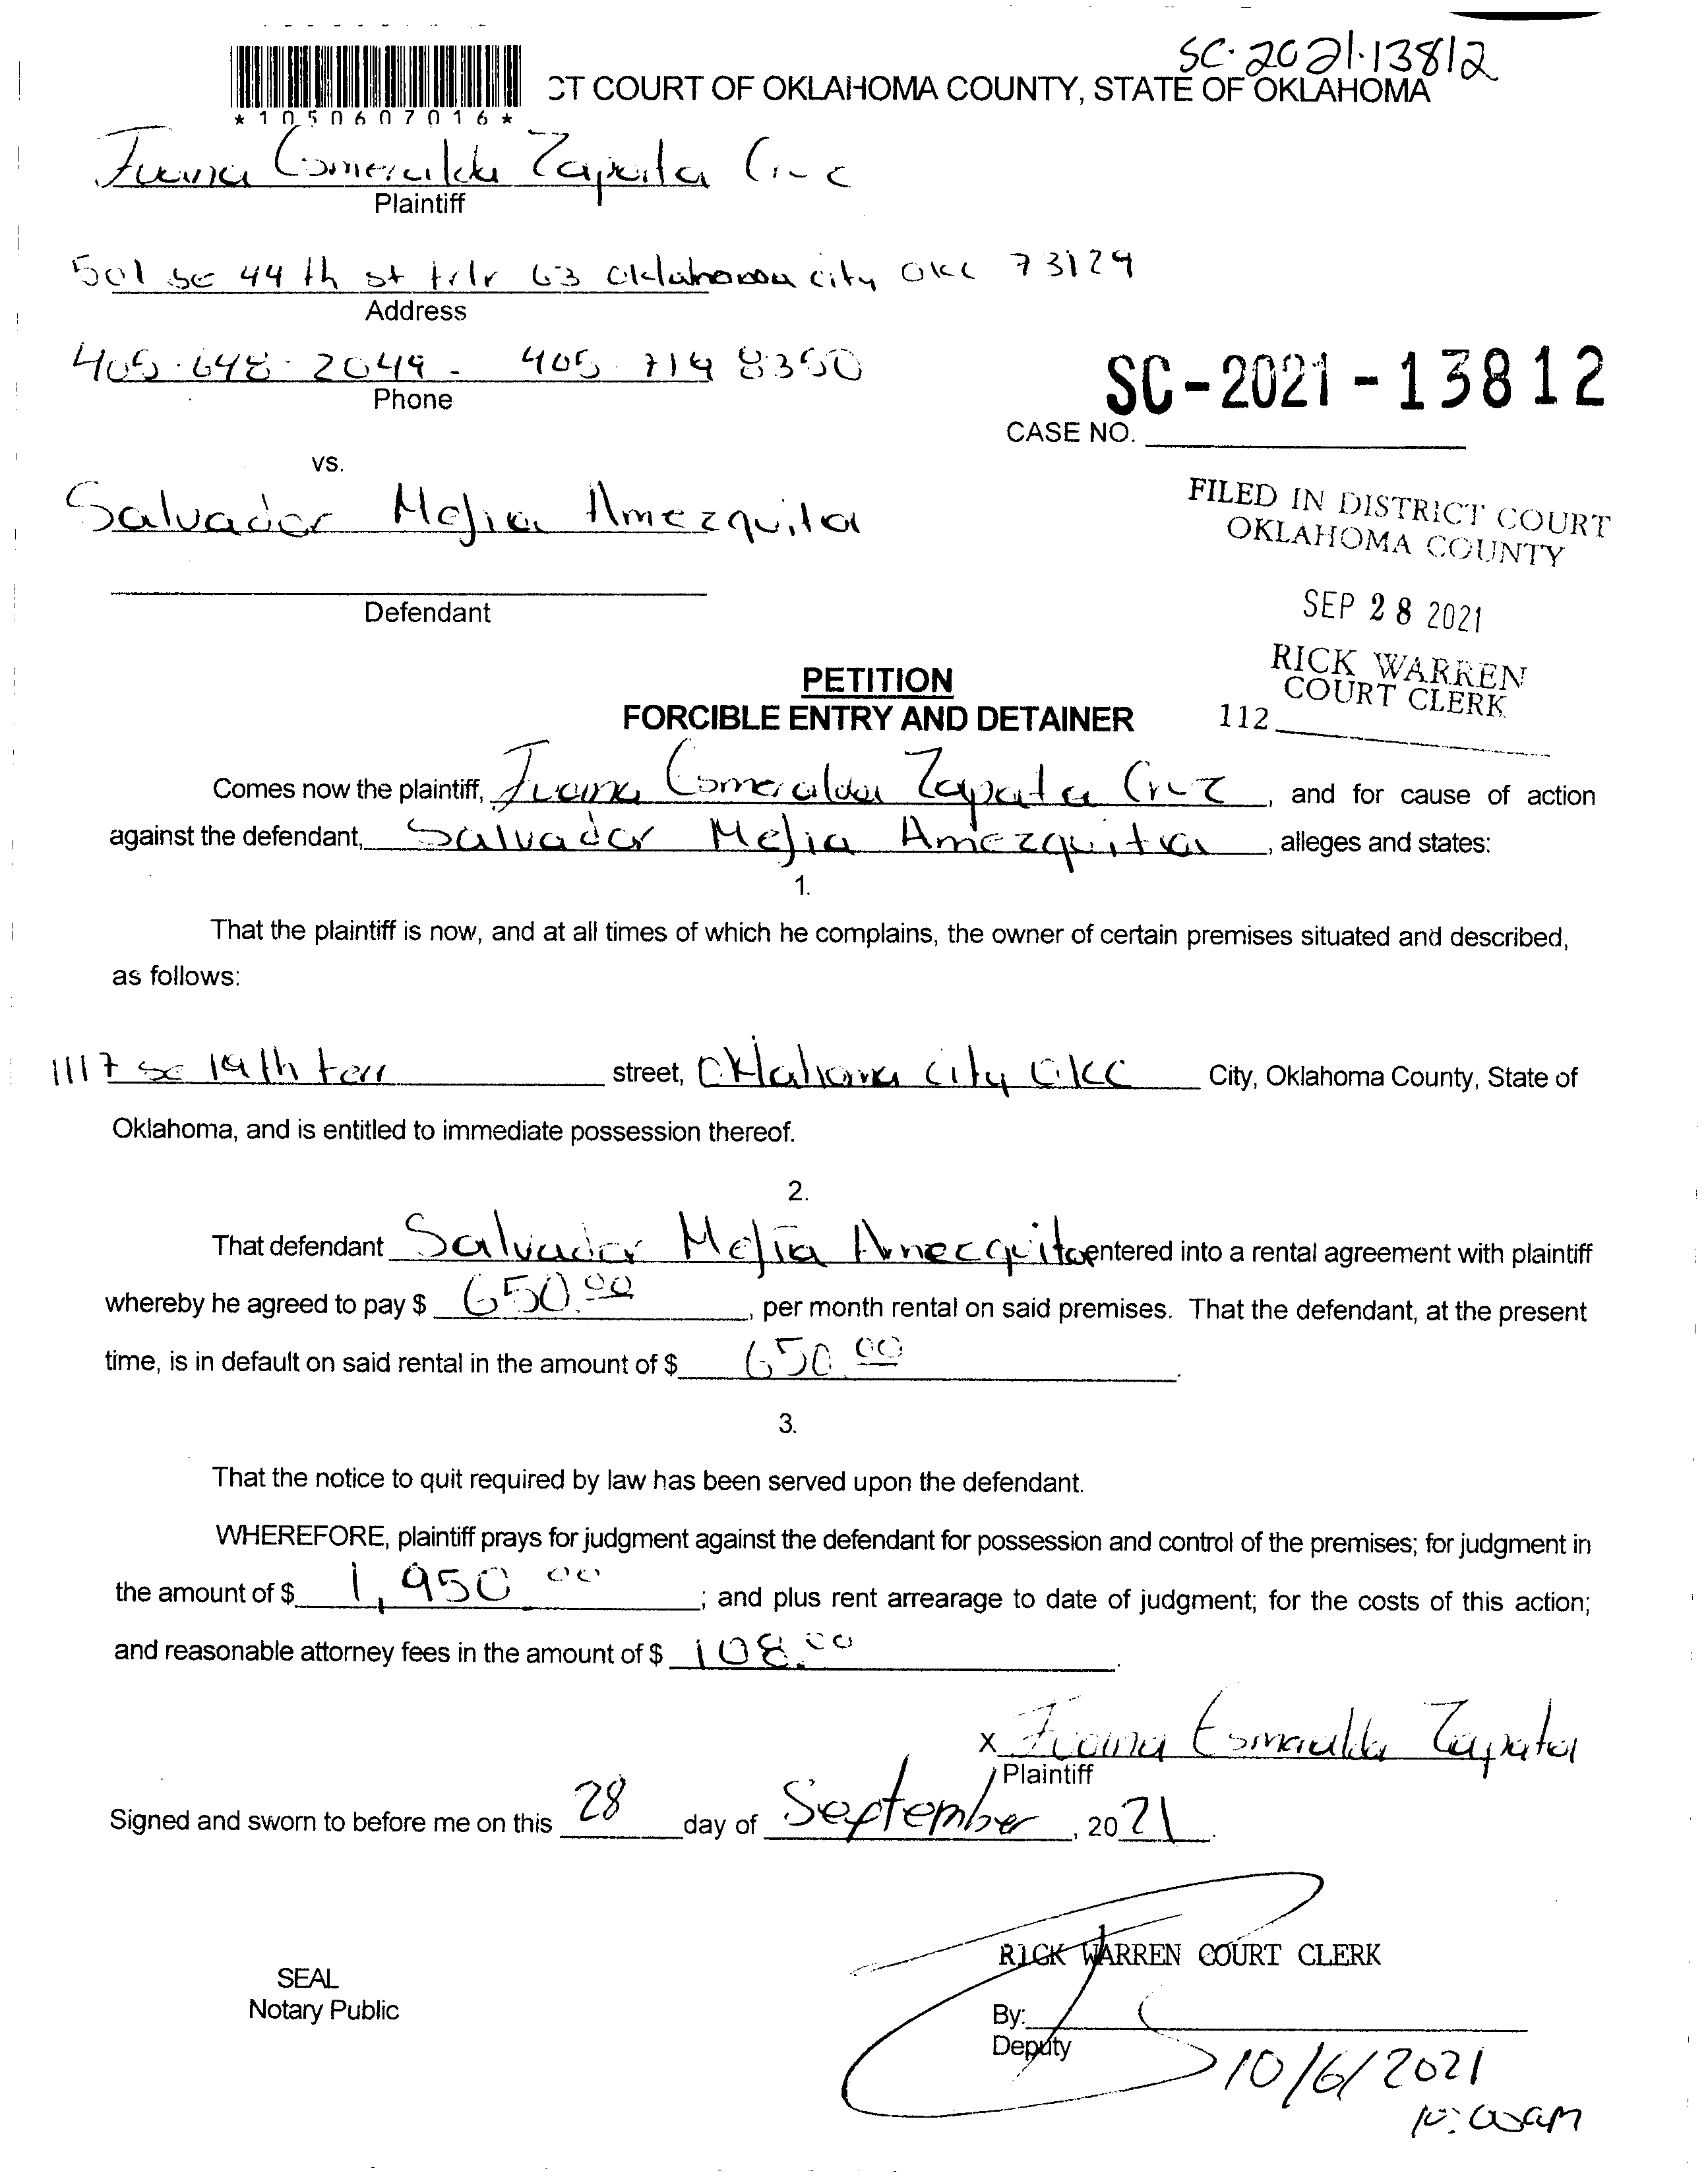 SC-2021-13812
CT COURT OF OKLAHOMA COUNTY, STATE OF OKLAHOMA
*1050607016*
Juana Esmeralda Zapata Cruz
Plaintiff
501 se 44 th st trlr 63 Oklahoma city OKC 73129
Address
405-648-2049 - 405 714 8350
Phone
SC-2021-13812
CASE NO.
vs.
Salvador Mejia Amezquita
FILED IN DISTRICT COURT
OKLAHOMA COUNTY
Defendant
SEP 28 2021
RICK WARREN
COURT CLERK
112
PETITION
FORCIBLE ENTRY AND DETAINER
Comes now the plaintiff, Juana Esmeralda Zapata Cruz, and for cause of action
against the defendant, Salvador Mejia Amezquita, alleges and states:
1.
That the plaintiff is now, and at all times of which he complains, the owner of certain premises situated and described,
as follows:
1117 se 19th terr street, Oklahoma city OKC City, Oklahoma County, State of
Oklahoma, and is entitled to immediate possession thereof.
2.
That defendant Salvador Mejia Amezquita entered into a rental agreement with plaintiff
whereby he agreed to pay $ 650.00, per month rental on said premises. That the defendant, at the present
time, is in default on said rental in the amount of $ 650.00.
3.
That the notice to quit required by law has been served upon the defendant.
WHEREFORE, plaintiff prays for judgment against the defendant for possession and control of the premises; for judgment in
the amount of $ 1,950.00; and plus rent arrearage to date of judgment; for the costs of this action;
and reasonable attorney fees in the amount of $ 108.00.
x Juana Esmeralda Zapata
Plaintiff
Signed and sworn to before me on this 28 day of September, 2021.
RICK WARREN COURT CLERK
SEAL
Notary Public
By:
Deputy
10/6/2021
10:00am